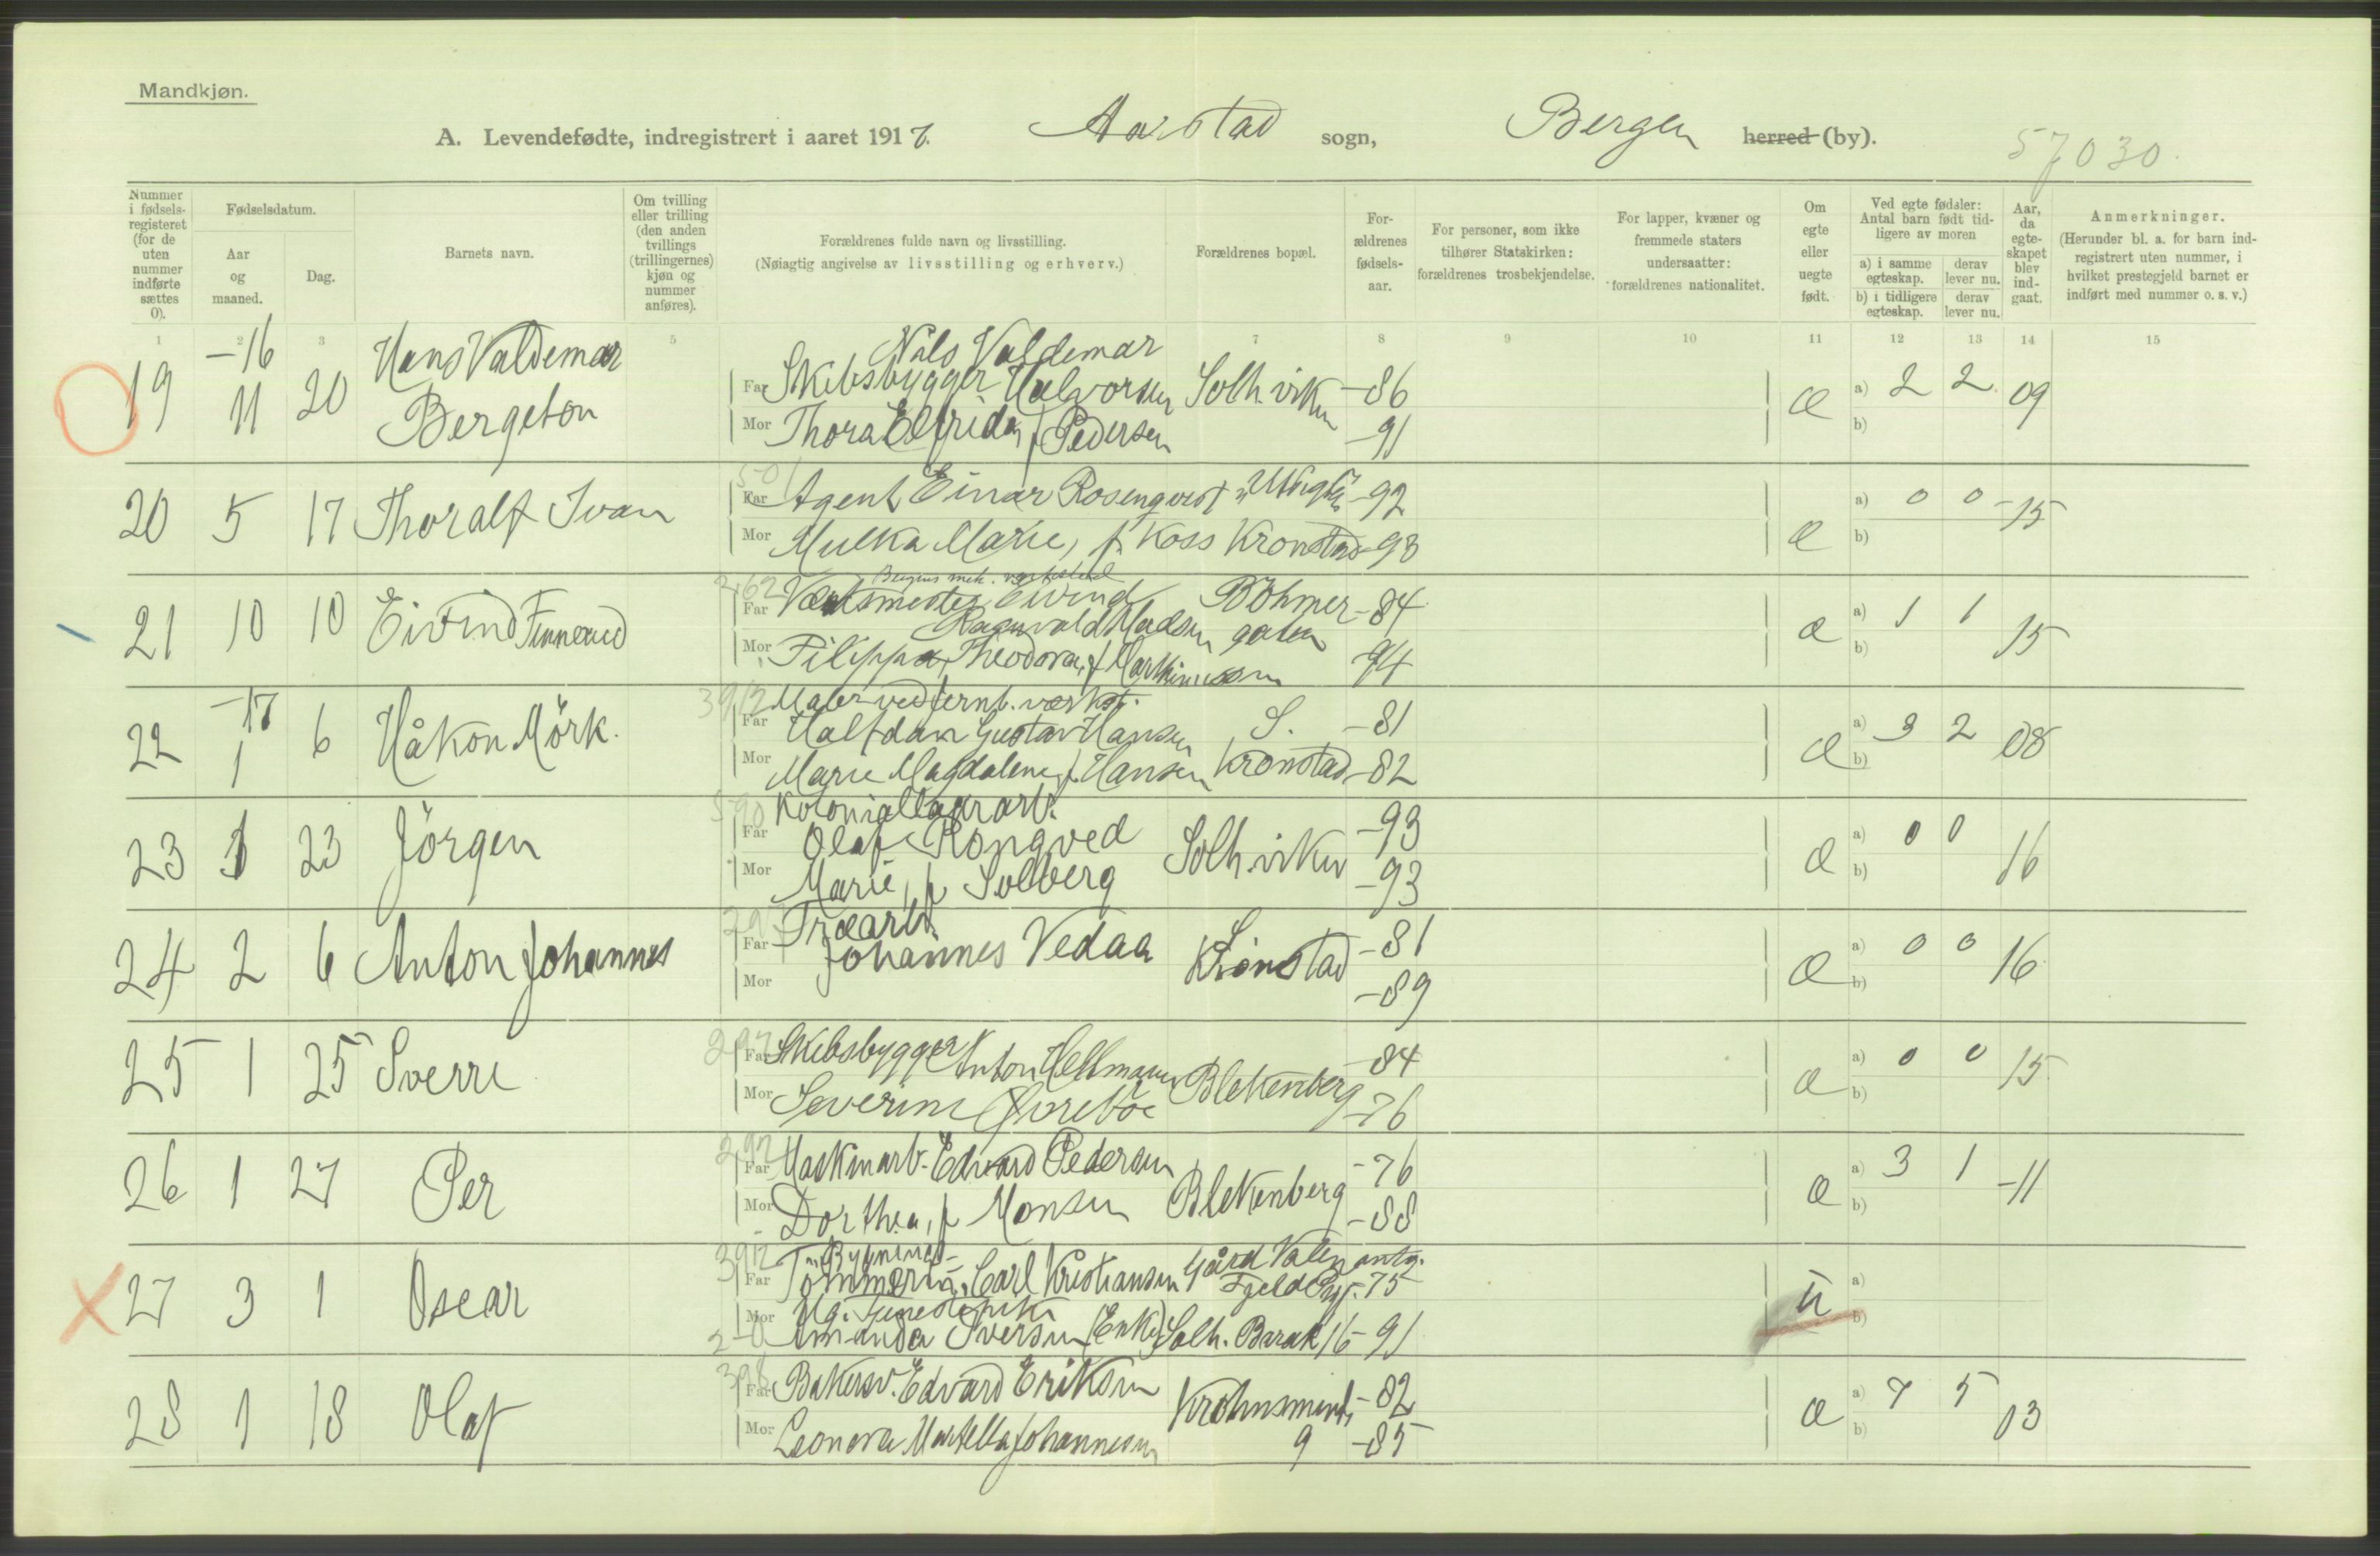 Mandkjøn.
A. Levendefødte, indregistrert i aaret 1917. Aarstad sogn, Bergen herred (by). 57030.
Nummer i fødselsregisteret (for de uten nummer indførte sættes 0).
Fødselsdatum.
Aar og maaned.
Dag.
Barnets navn.
Om tvilling eller trilling (den anden tvillings (trillingernes) kjøn og nummer anføres).
Forældrenes fulde navn og livsstilling.
(Nøiagtig angivelse av livsstilling og erhverv.)
Forældrenes bopæl.
Forældrenes fødselsaar.
For personer, som ikke tilhører Statskirken: forældrenes trosbekjendelse.
For lapper, kvæner og fremmede staters undersaatter: forældrenes nationalitet.
Om egte eller uegte født.
Ved egte fødsler: Antal barn født tidligere av moren
a) i samme egteskap. derav lever nu.
b) i tidligere egteskap. derav lever nu.
Aar, da egteskapet blev indgaat.
Anmerkninger.
(Herunder bl. a. for barn indregistrert uten nummer, i hvilket prestegjeld barnet er indført med nummer o. s. v.)
1 2 3 5 7 8 9 10 11 12 13 14 15
19 -16 11 20 Hans Valdemar Bergeton
Far Skibsbygger Nils Valdemar Halvorsen Solh.viken -86 æ a) 2 2 09
Mor Thora Elfrida, f. Pedersen -91 b)
20 5 17 Thoralf Ivan
Far Agent Einar Rosenqvist -92 æ a) 0 0 -15
Mor Mulka Marie, f. Koss Kronstad -93 b)
21 10 10 Eivind Finnerud
Bergens mek. verksted
Far Eivind Ragnvald Madsen Böhmergaten -84 æ a) 1 1 15
Mor Filippa Theodora, f. Marthinussen -94 b)
22 -17 1 6 Håkon Mörk.
3912 Maler ved Jernb. værkst.
Far Halfdan Gustav Hansen S. -81 æ a) 3 2 08
Mor Marie Magdalene, f. Hansen Kronstad -82 b)
23 1 23 Jörgen
Koloniallagerarb.
Far Olaf Rongved Solh.viken -93 æ a) 0 0 16
Mor Marie, f. Solberg -93 b)
24 2 6 Anton Johannes
Træarb.
Far Johannes Vedaa Kronstad -81 æ a) 0 0 16
Mor -89 b)
25 1 25 Sverre
297 Far Skibsbygger Anton Hellmann Blekenberg -84 æ a) 0 0 15
Mor Severine -76 b)
26 1 27 Per
292 Far Maskinarb. Edvard Pedersen Blekenberg -76 æ a) 3 1 -11
Mor Dorthea, f. Monsen -88 b)
27 3 1 Oscar
3912 Bygnings-
Far Tömmerm. Carl Kristiansen Gård -75 ü a)
Ug. Tjenestepike
Mor Amanda Iversen (Enke) Solh. Barak 16 -91 b)
28 1 18 Olaf
398 Far Bakersv. Edvard Eriksen Krohnsminde 9 -82 æ a) 7 5 03
Mor Leonora Martella Johannesen -85 b)